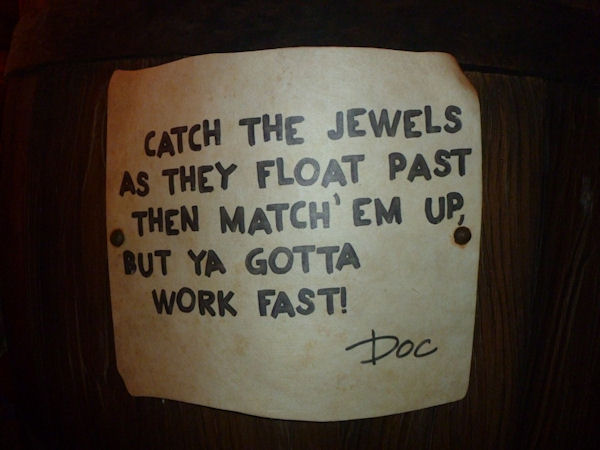 CATCH THE JEWELS
AS THEY FLOAT PAST
THEN MATCH'EM UP,
BUT YA GOTTA
WORK FAST!
Doc